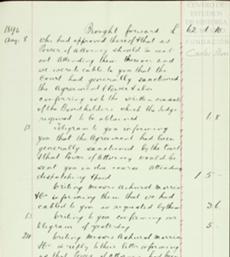 1896 Brought forward £ 62 . 1 . 10
Aug. 8 who had approved thereof that as
Power of Attorney should be sent
out Attending them thereon and
we were able to you that the
Court had generally sanctioned
the Agreement & Power & also
conferring with the written consents
of the Bondholders which the Judge
required to be obtained 1 . 8
Telegram to you informing
you that the Agreement had been
generally sanctioned by the Court
& that Power of Attorney would be
sent you in due course Attending
dispatching 1 . 5 -
Writing Messrs Ashurst Morris
& Co informing them that we had
cabled to you as requested 3 . 6
13 Writing to you confirming our
telegram of yesterday 5 -
Writing Messrs Ashurst Morris
& Co in reply to their letter informing
us that Power of Attorney had been
CENTRO DE
ESTUDIOS
DE HISTORIA
FUNDACIÓN